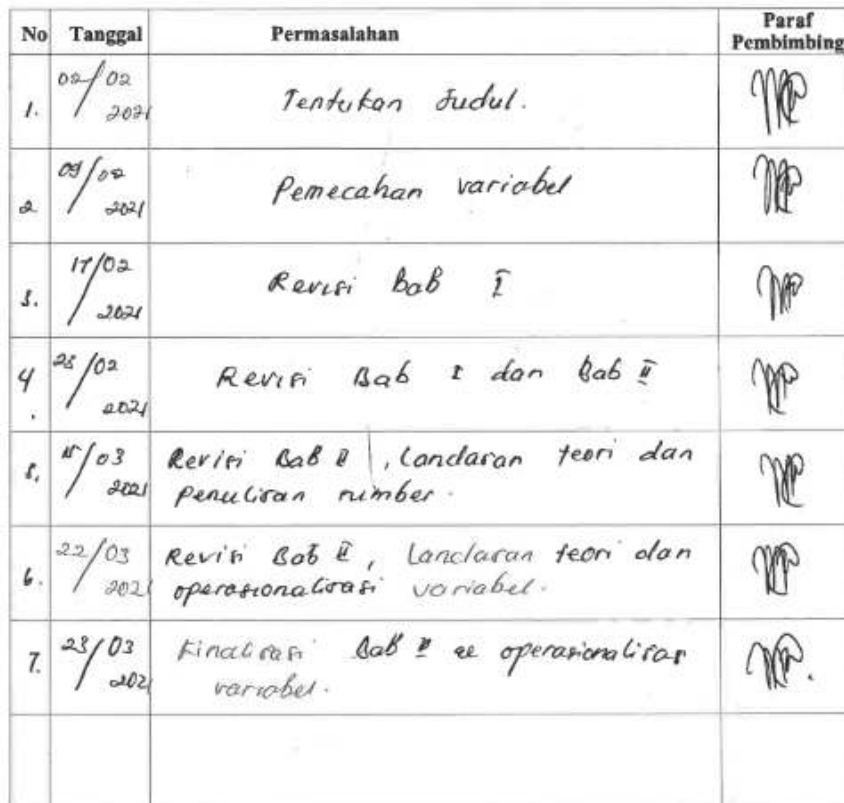 No Tanggal Permasalahan Paraf Pembimbing
1. 02/02 2021 Tentukan Judul.
2 09/02 2021 Pemecahan variabel
3. 17/02 2021 Revisi Bab I
4. 23/02 2021 Revisi Bab I dan Bab II
5. 15/03 2021 Revisi Bab II, Landasan teori dan
penulisan number.
6. 22/03 2021 Revisi Bab II, Landasan teori dan
operasionalisasi variabel.
7. 23/03 2021 Finalisasi Bab II operasionalisas
variabel.